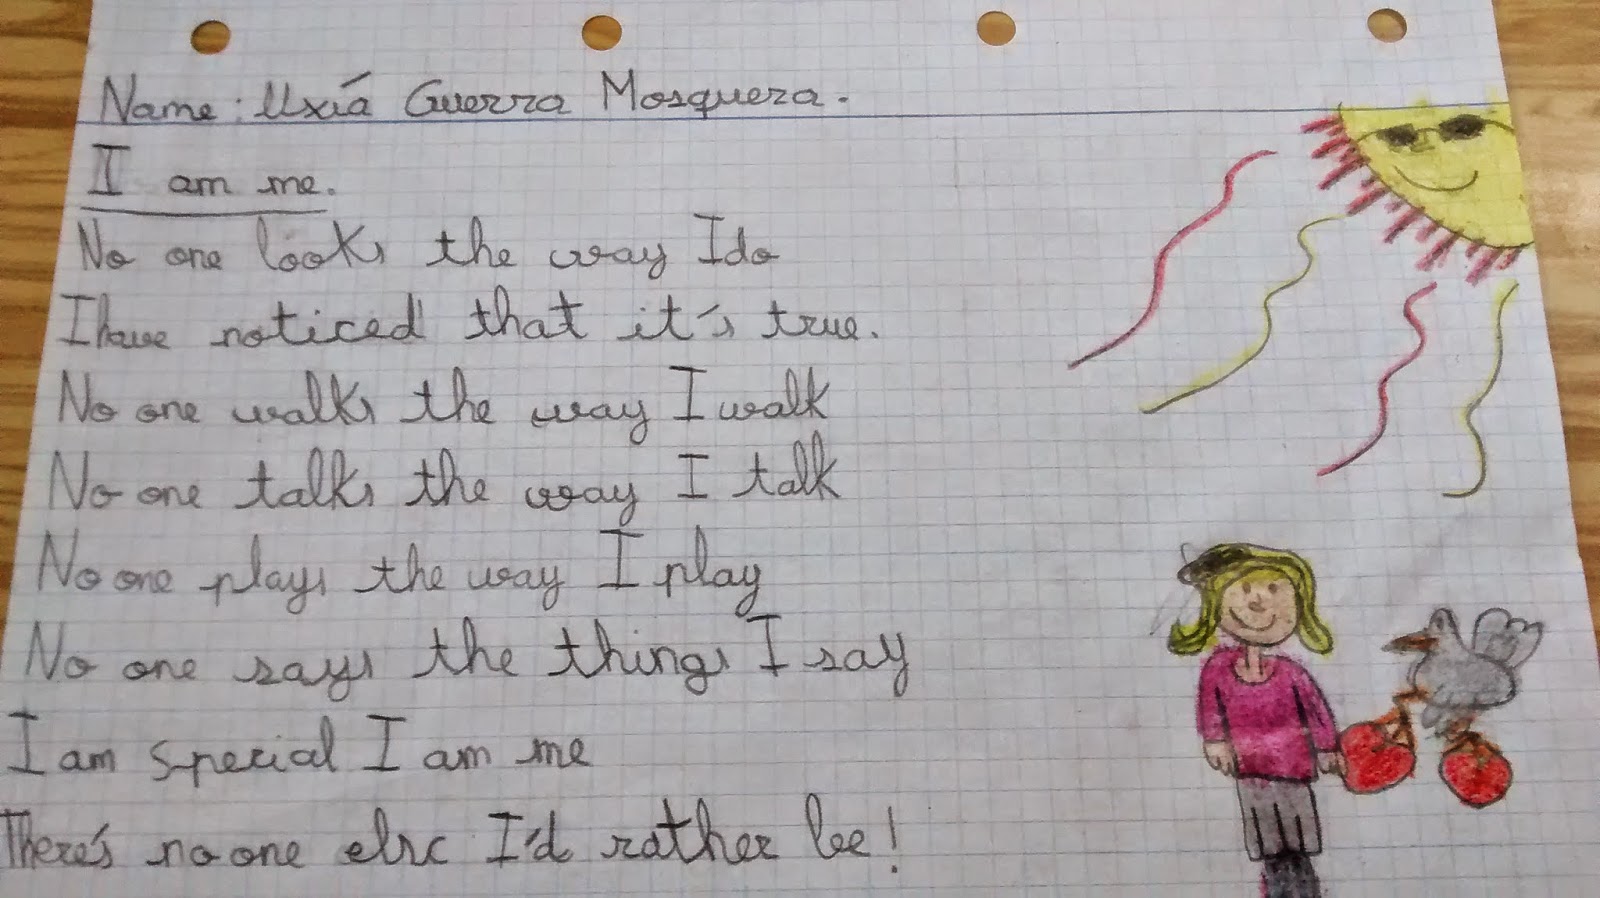 Name: Uxía Guerra Mosquera.
I am me.
No one looks the way I do
I have noticed that it's true.
No one walks the way I walk
No one talks the way I talk
No one plays the way I play
No one says the things I say
I am special I am me
There's no one else I'd rather be!